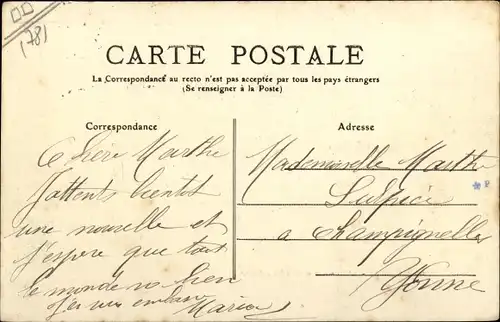 (78)
CARTE POSTALE
La Correspondance au recto n'est pas acceptée par tous les pays étrangers
(Se renseigner à la Poste)
Correspondance
Chère Marthe
J'attents bientot
une nouvelle et
j'espere que tout
le monde va bien
Maria
Adresse
Mademoiselle Marthe
Sulpice
a Champignelles
Yonne